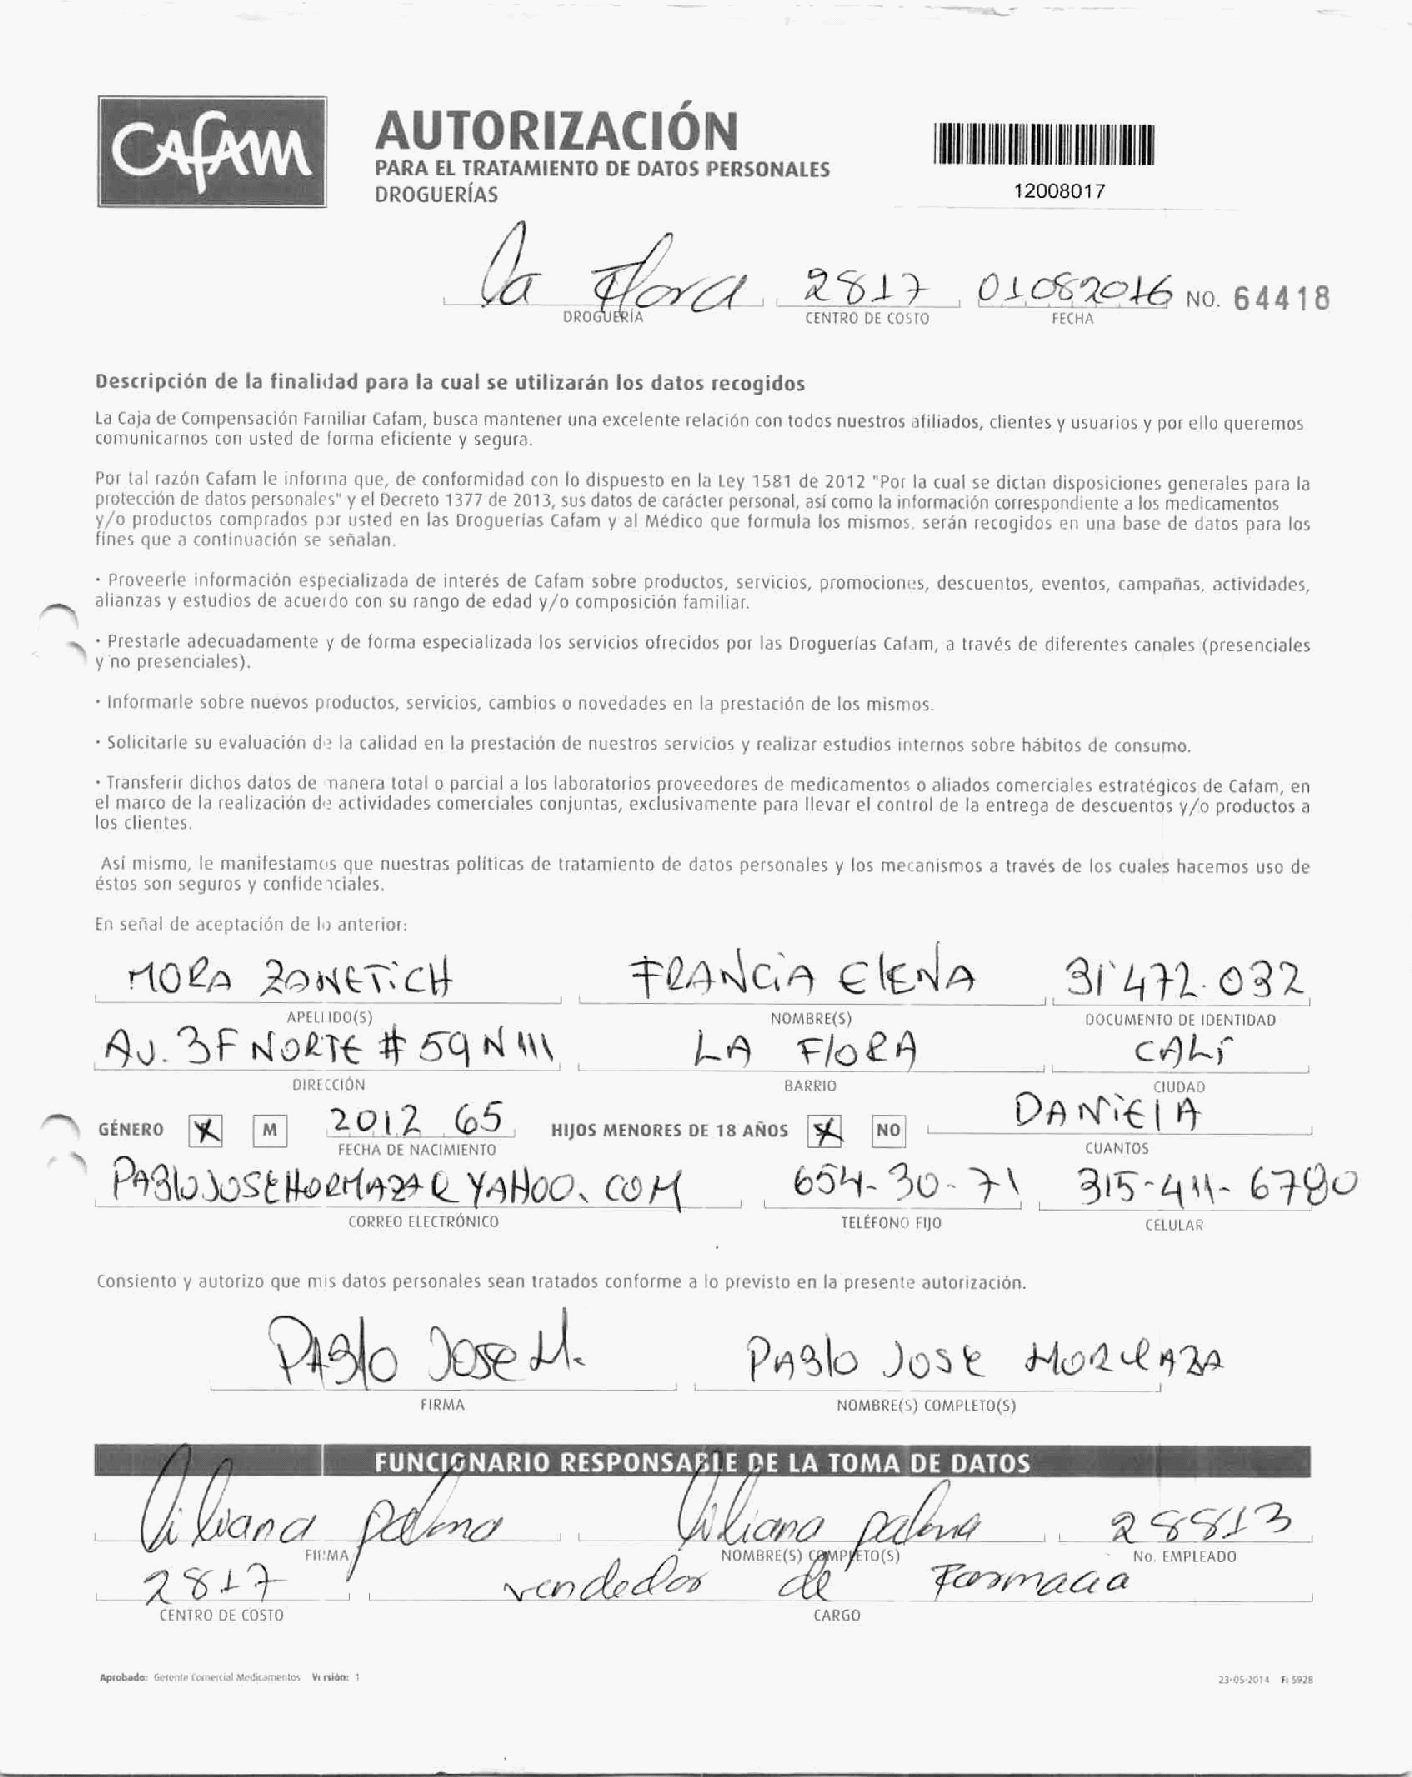 CAFAM
AUTORIZACIÓN
PARA EL TRATAMIENTO DE DATOS PERSONALES
DROGUERÍAS
12008017
la Flora 2817 01082016 NO. 64418
DROGUERÍA CENTRO DE COSTO FECHA
Descripción de la finalidad para la cual se utilizarán los datos recogidos
La Caja de Compensación Familiar Cafam, busca mantener una excelente relación con todos nuestros afiliados, clientes y usuarios y por ello queremos
comunicarnos con usted de forma eficiente y segura.
Por tal razón Cafam le informa que, de conformidad con lo dispuesto en la Ley 1581 de 2012 "Por la cual se dictan disposiciones generales para la
protección de datos personales" y el Decreto 1377 de 2013, sus datos de carácter personal, así como la información correspondiente a los medicamentos
y/o productos comprados por usted en las Droguerías Cafam y al Médico que formula los mismos, serán recogidos en una base de datos para los
fines que a continuación se señalan.
· Proveerle información especializada de interés de Cafam sobre productos, servicios, promociones, descuentos, eventos, campañas, actividades,
alianzas y estudios de acuerdo con su rango de edad y/o composición familiar.
· Prestarle adecuadamente y de forma especializada los servicios ofrecidos por las Droguerías Cafam, a través de diferentes canales (presenciales
y no presenciales).
· Informarle sobre nuevos productos, servicios, cambios o novedades en la prestación de los mismos.
· Solicitarle su evaluación de la calidad en la prestación de nuestros servicios y realizar estudios internos sobre hábitos de consumo.
· Transferir dichos datos de manera total o parcial a los laboratorios proveedores de medicamentos o aliados comerciales estratégicos de Cafam, en
el marco de la realización de actividades comerciales conjuntas, exclusivamente para llevar el control de la entrega de descuentos y/o productos a
los clientes.
Así mismo, le manifestamos que nuestras políticas de tratamiento de datos personales y los mecanismos a través de los cuales hacemos uso de
éstos son seguros y confidenciales.
En señal de aceptación de lo anterior:
MORA ZONETICH FRANCIA ELENA 31'472.032
APELLIDO(S) NOMBRE(S) DOCUMENTO DE IDENTIDAD
AV. 3F NORTE # 59N111 LA FLORA CALI
DIRECCIÓN BARRIO CIUDAD
GÉNERO X M 2012 65 HIJOS MENORES DE 18 AÑOS X NO DANIELA
FECHA DE NACIMIENTO CUANTOS
PABLOJOSEHORMAZA@YAHOO.COM 654-30-71 315-411-6780
CORREO ELECTRÓNICO TELÉFONO FIJO CELULAR
Consiento y autorizo que mis datos personales sean tratados conforme a lo previsto en la presente autorización.
PABLO JOSE H. PABLO JOSE
FIRMA NOMBRE(S) COMPLETO(S)
FUNCIONARIO RESPONSABLE DE LA TOMA DE DATOS
Liliana palma Liliana palma 28813
FIRMA NOMBRE(S) COMPLETO(S) No. EMPLEADO
2817 vendedor de Farmacia
CENTRO DE COSTO CARGO
Aprobado: Gerente Comercial Medicamentos Versión: 1 23-05-2014 F: 5928